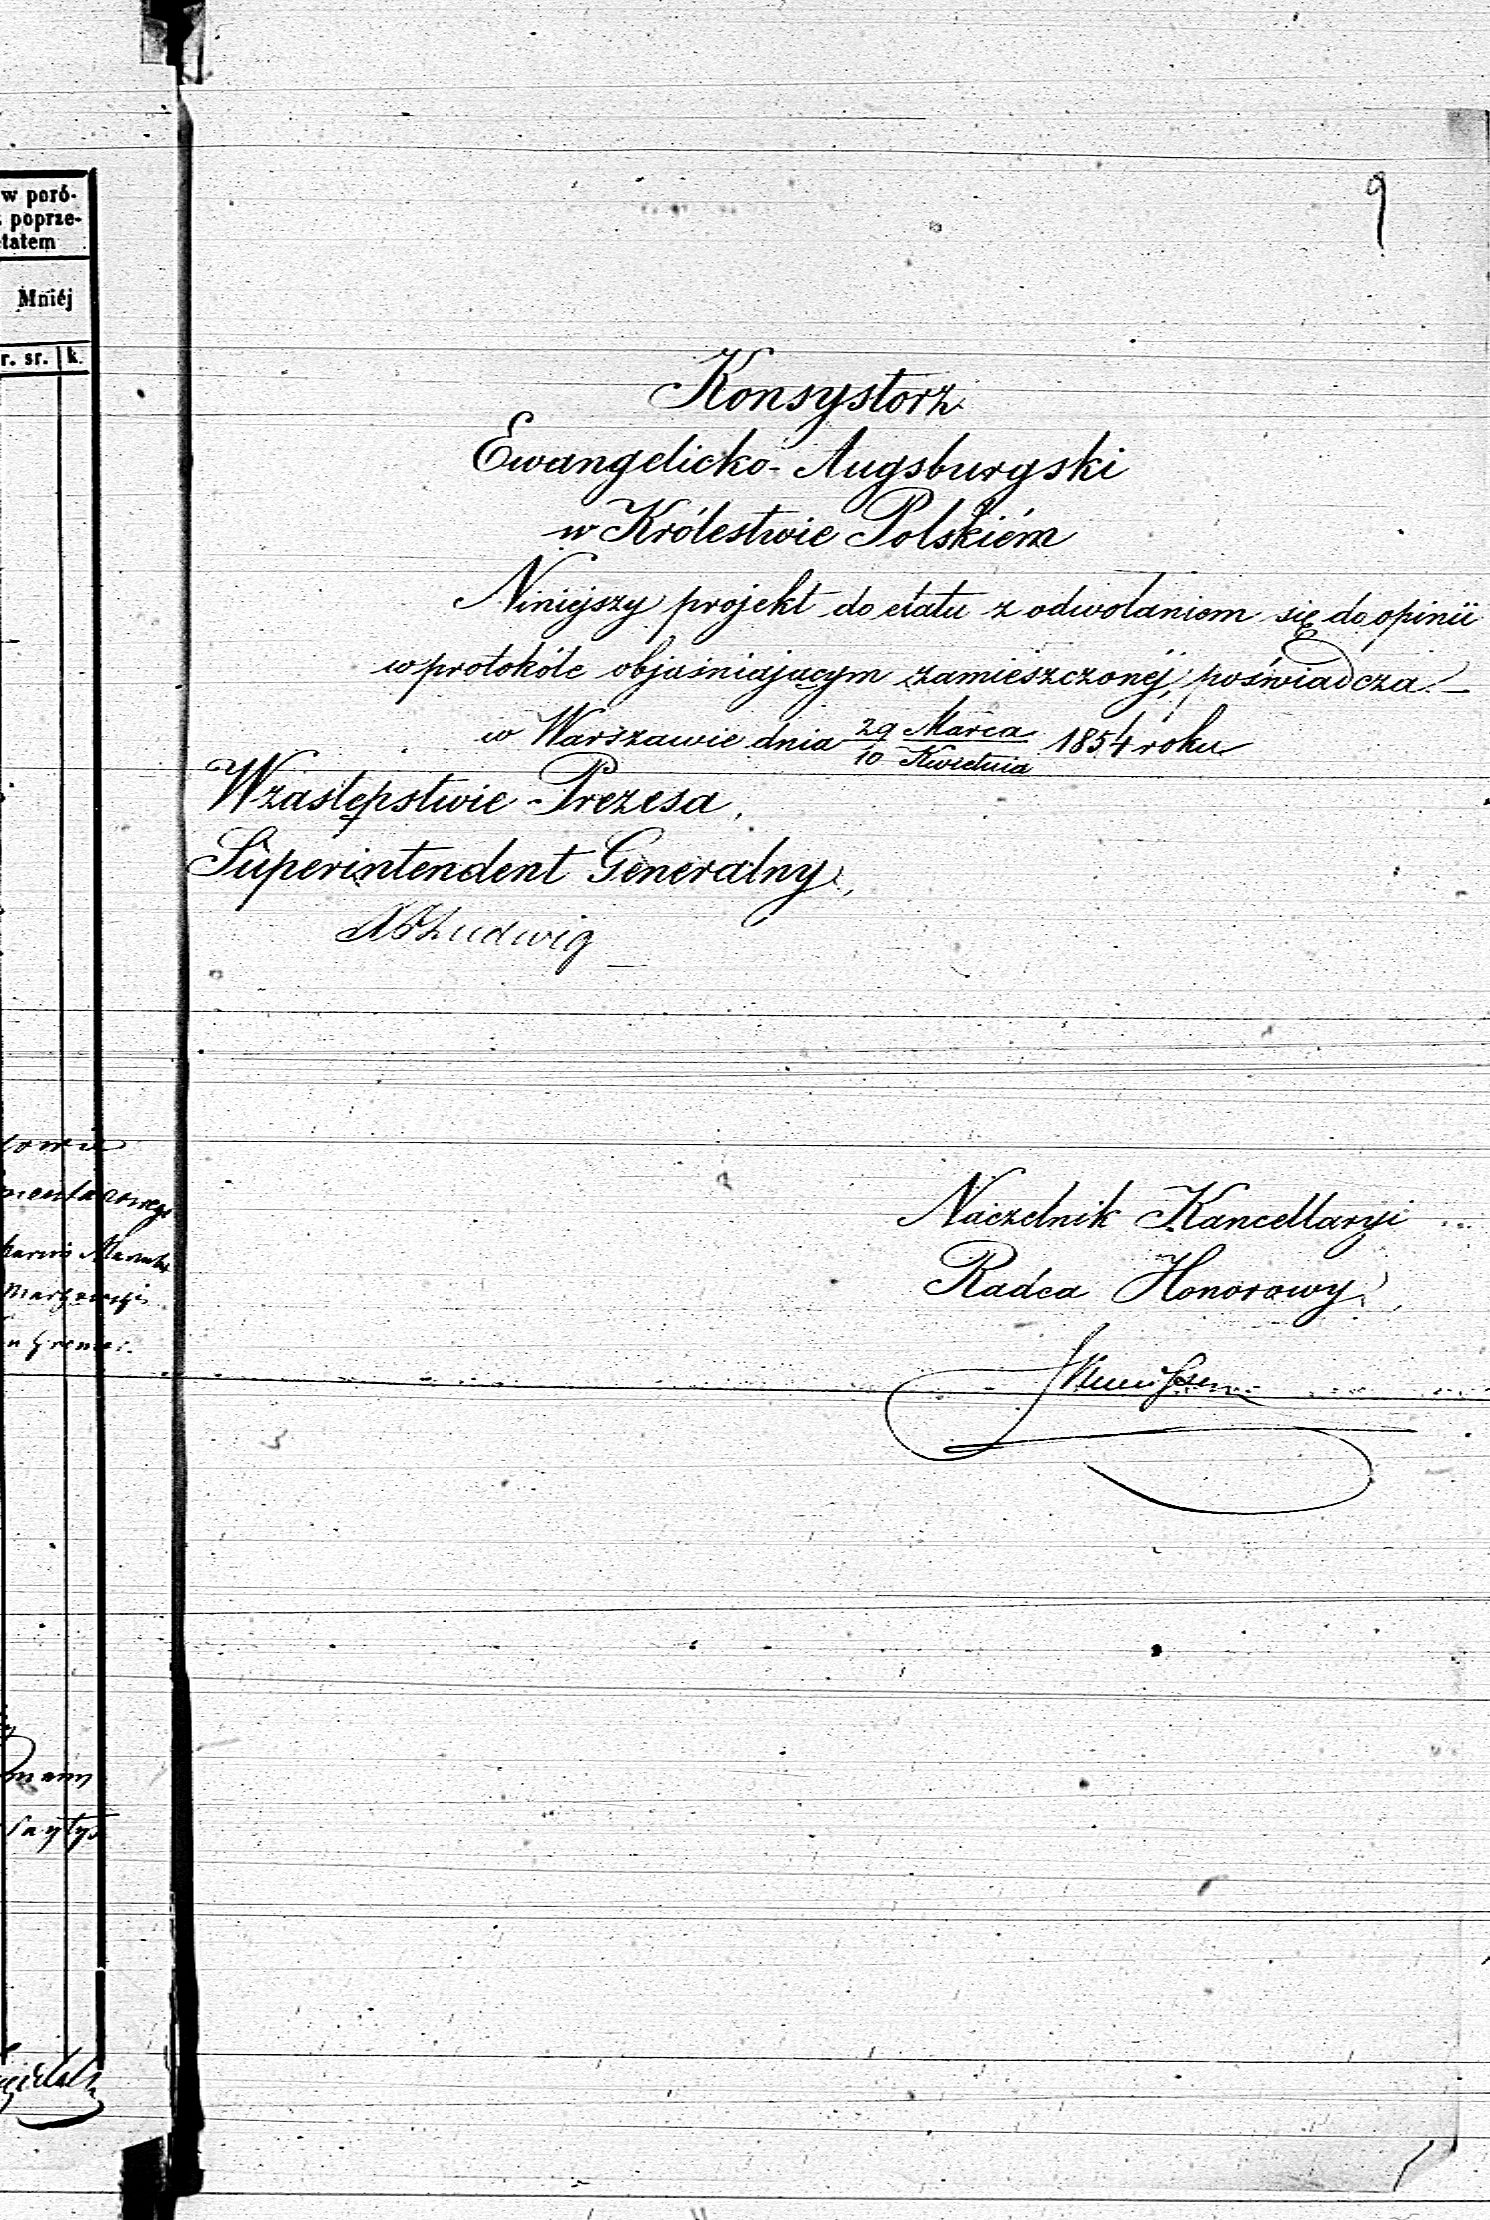 w poró-
poprze-
etatem
Mniéj
r. sr. k.
9
Konsystorz
Ewangelicko-Augsburgski
w Królestwie Polskiém
Niniejszy projekt do etatu z odwołaniem się do opinii
w protokóle objaśniającym zamieszczonéj, poświadcza.—
w Warszawie dnia 29 Marca / 10 Kwietnia 1854 roku
W zastępstwie Prezesa,
Superintendent Generalny,
Ludwig
Naczelnik Kancellaryi
Radca Honorowy,